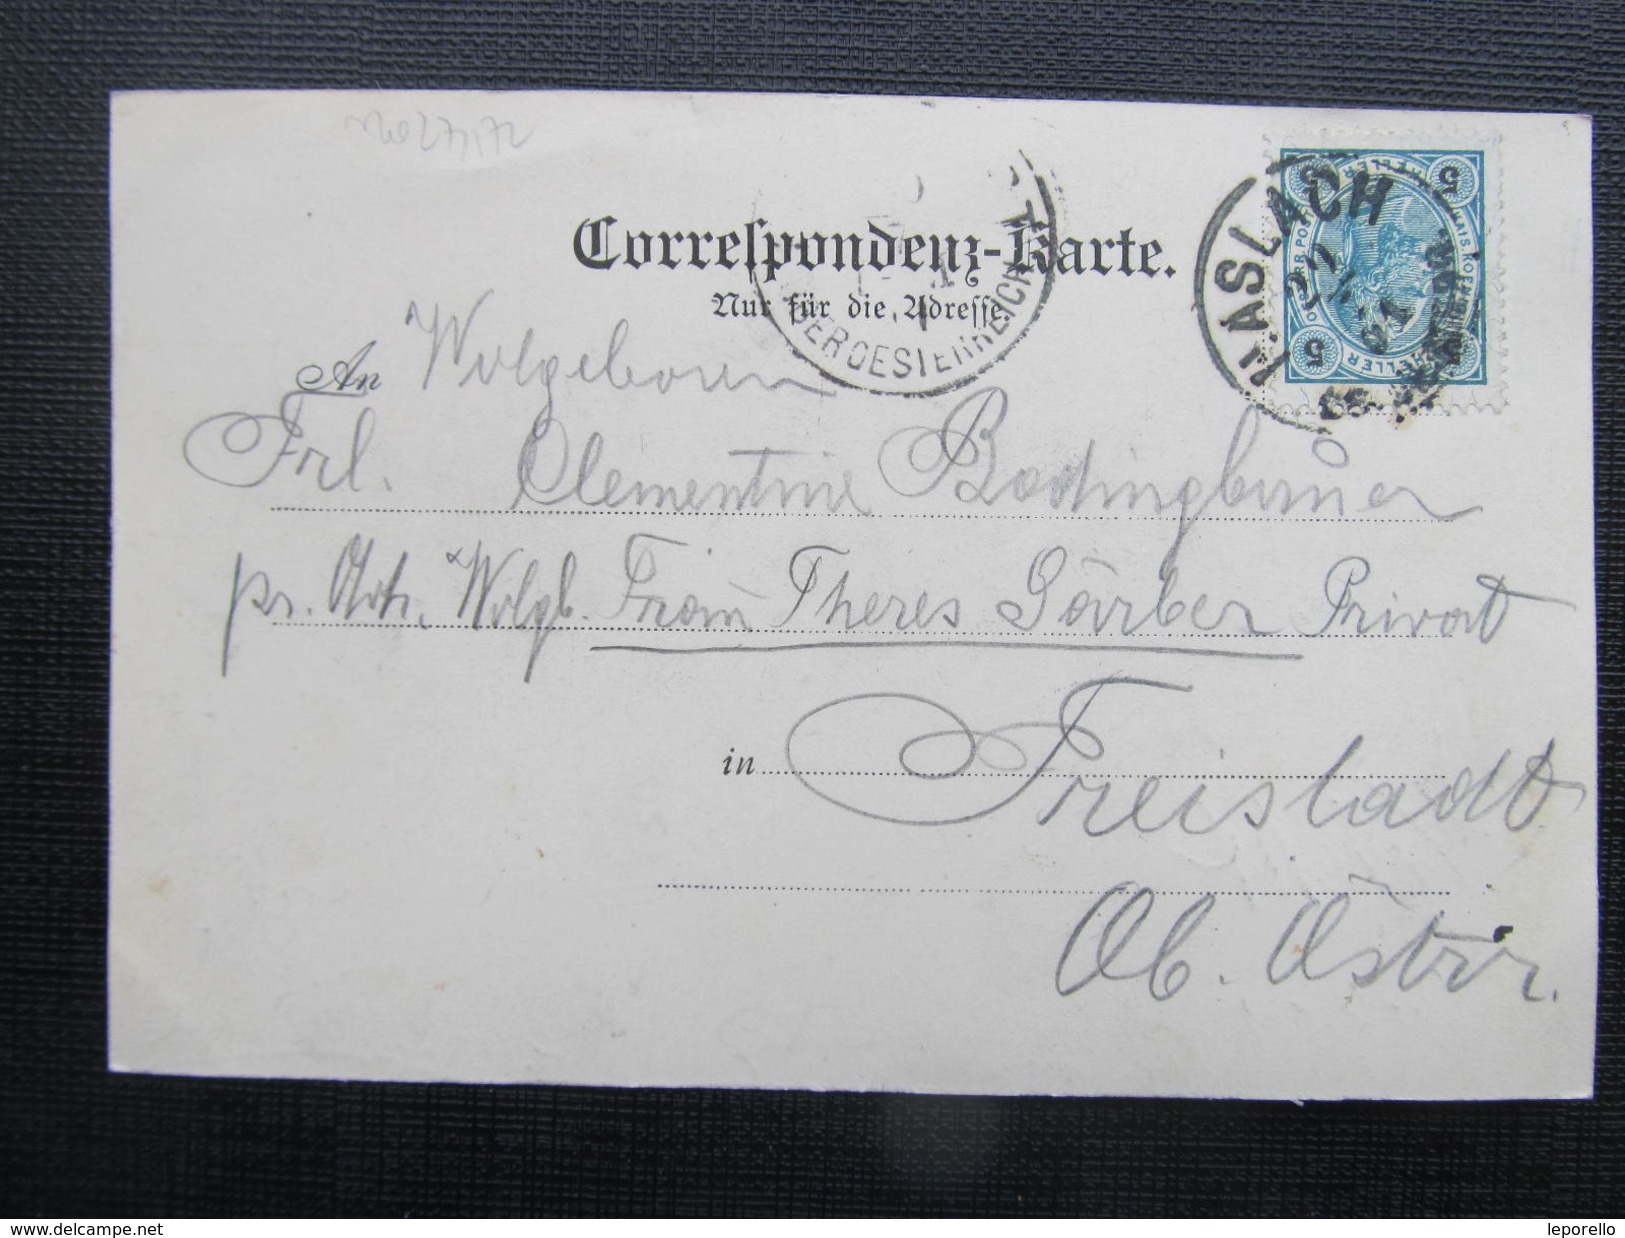 Correspondenz-Karte.
Nur für die Adresse.
HASLACH
OBEROESTERREICH
5
5
An Wolgeboren
Frl. Clementine Bodingbauer
pr. Adr. Wolgb. Frau Theres Särber Privat
in Freistadt
Ob. Östrr.
delcampe.net
leporello